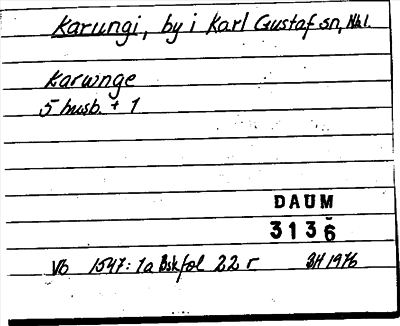 Karungi, by i Karl Gustaf sn, Nbl.
Karwnge
5 husb. + 1
DAUM
3136
Vb 1547: 1a Bskfol 22 r BH 1976